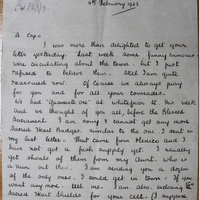 9th February 1923
A Capt.
I was more than delighted to get your
letter yesterday. Last week some funny rumours
were circulating about the town. but I just
refused to believe them. Still I am quite
reassured now. Of course we always pray
for you and for all your comrades.
We had "Quarant' ore" at whitefriars St this week
and we thought of you all, before the Blessed
Sacrament. I am sorry I cannot get any more
Sacred Heart Badges similar to the one I sent in
my last letter. That came from Mexico and I
have not got a fresh supply yet. I usually
get shoals of them from my Aunt. who is
a nun out there. I am sending you a dozen
of the only ones. I could get in town. If you
want any more. tell me. I am also. enclosing
Sacred Heart Shields for your cell. (I suppose